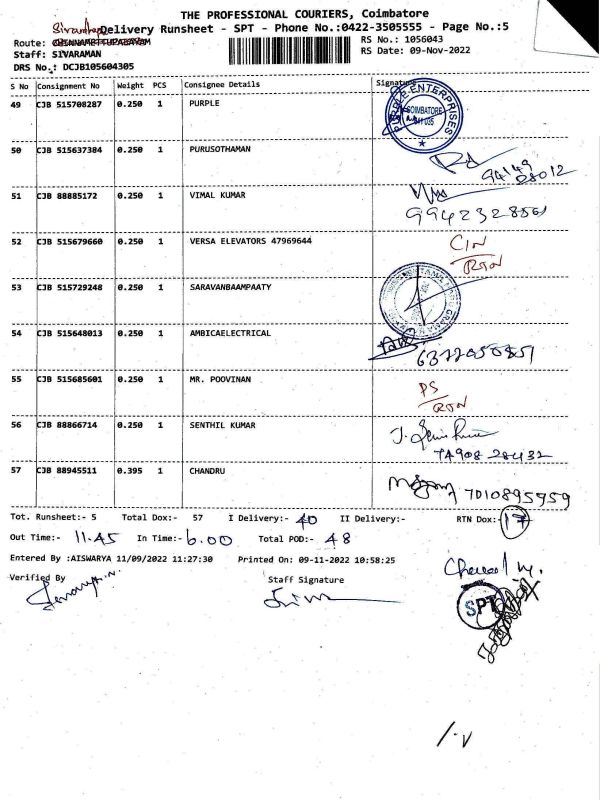 THE PROFESSIONAL COURIERS, Coimbatore
Delivery Runsheet - SPT - Phone No.:0422-3505555 - Page No.:5
Route: CHINNAMETTUPALAYAM
RS No.: 1056043
Staff: SIVARAMAN
RS Date: 09-Nov-2022
DRS No.: DCJB105604305
S No Consignment No Weight PCS Consignee Details Signature
49 CJB 515708287 0.250 1 PURPLE
PURPLE ENTERPRISES
COIMBATORE
50 CJB 515637384 0.250 1 PURUSOTHAMAN
94149
28012
51 CJB 88885172 0.250 1 VIMAL KUMAR
9942328561
52 CJB 515679660 0.250 1 VERSA ELEVATORS 47969644
CIN
RTN
53 CJB 515729248 0.250 1 SARAVANBAAMPAATY
54 CJB 515648013 0.250 1 AMBICAELECTRICAL
6372050851
55 CJB 515685601 0.250 1 MR. POOVINAN
PS
RTN
56 CJB 88866714 0.250 1 SENTHIL KUMAR
74908 28432
57 CJB 88945511 0.395 1 CHANDRU
7010895959
Tot. Runsheet:- 5 Total Dox:- 57 I Delivery:- 40 II Delivery:- RTN Dox:- 17
Out Time:- 11.45 In Time:- 6.00 Total POD:- 48
Entered By :AISWARYA 11/09/2022 11:27:30 Printed On: 09-11-2022 10:58:25
Verified By Staff Signature
SPT